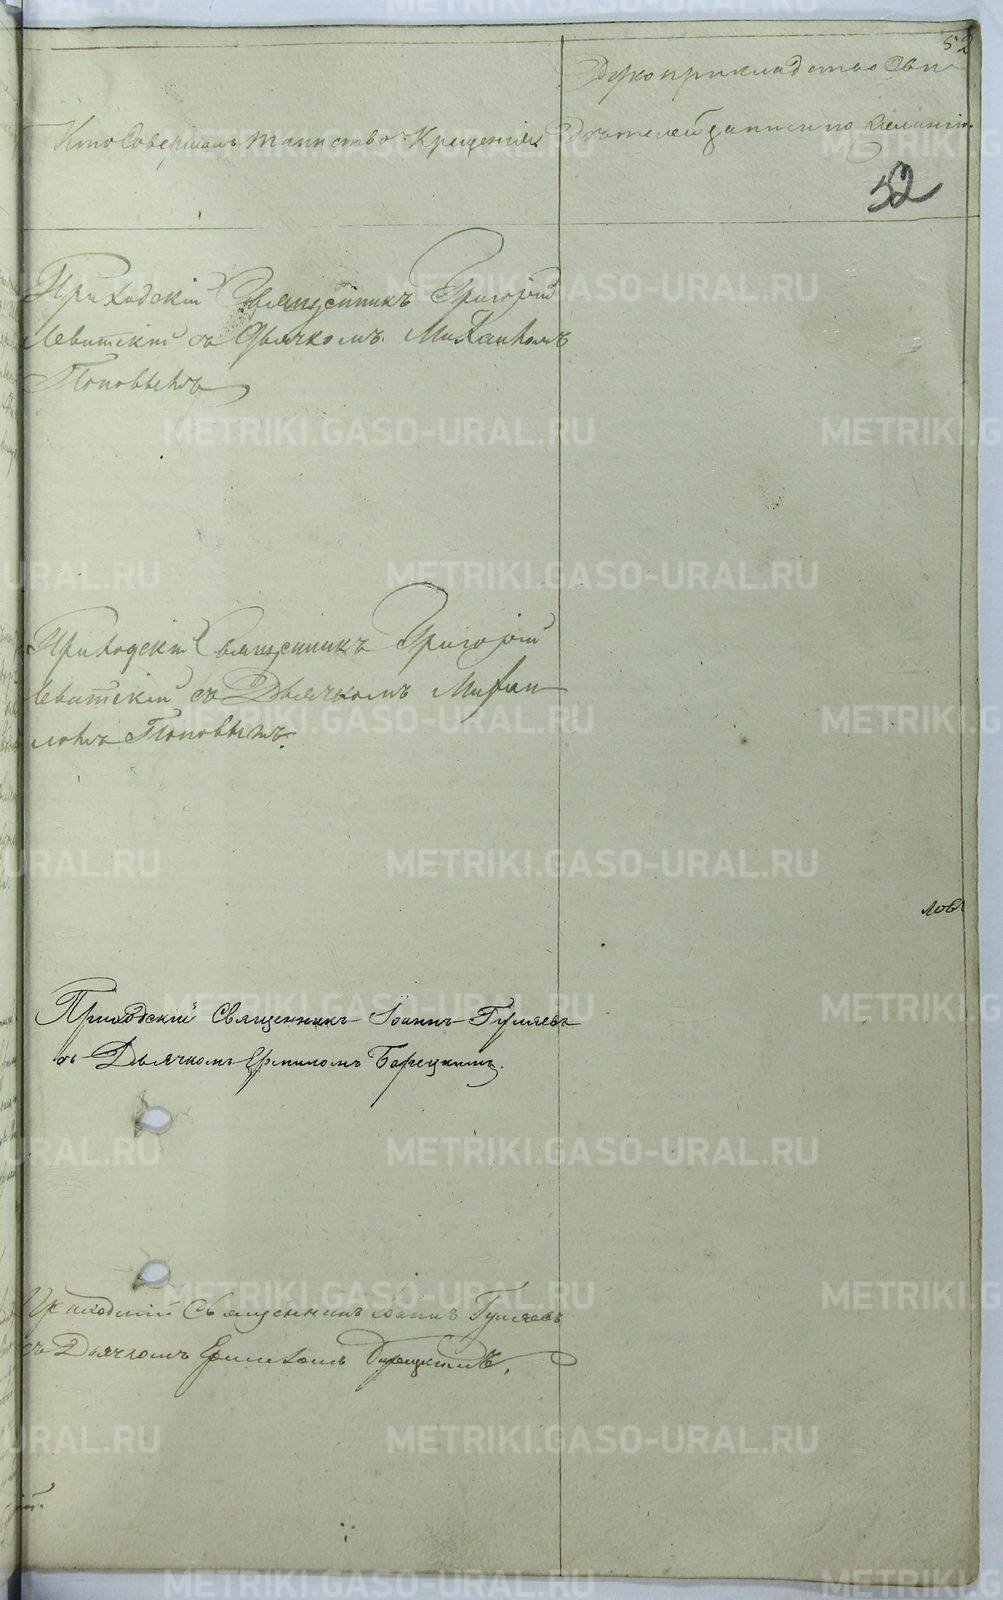 52
Кто Совершалъ таинство Крещенія.
Рукоприкладство Сви-
дѣтелей записи по желанію.
52
Приходскій Священникъ Григорій
Левитскій съ Дьячкомъ Михаиломъ
Поповымъ
Приходскій Священникъ Григорій
Левитскій съ Дьячкомъ Михаи
ломъ Поповымъ.
ловъ
Приходскій Священникъ Іоаннъ Гуляевъ
съ Дьячкомъ Ермиломъ Борецкимъ.
Приходскій Священникъ Іоаннъ Гуляевъ
съ Дьячкомъ Ермиломъ Борецкимъ.
METRIKI.GASO-URAL.RU